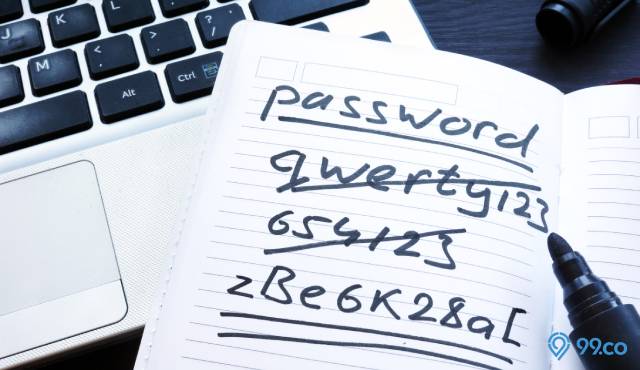 password
qwerty123
654123
zBe6K28a[
J
K
L
M
<
,
>
.
?
/
Alt
Ctrl
99.co